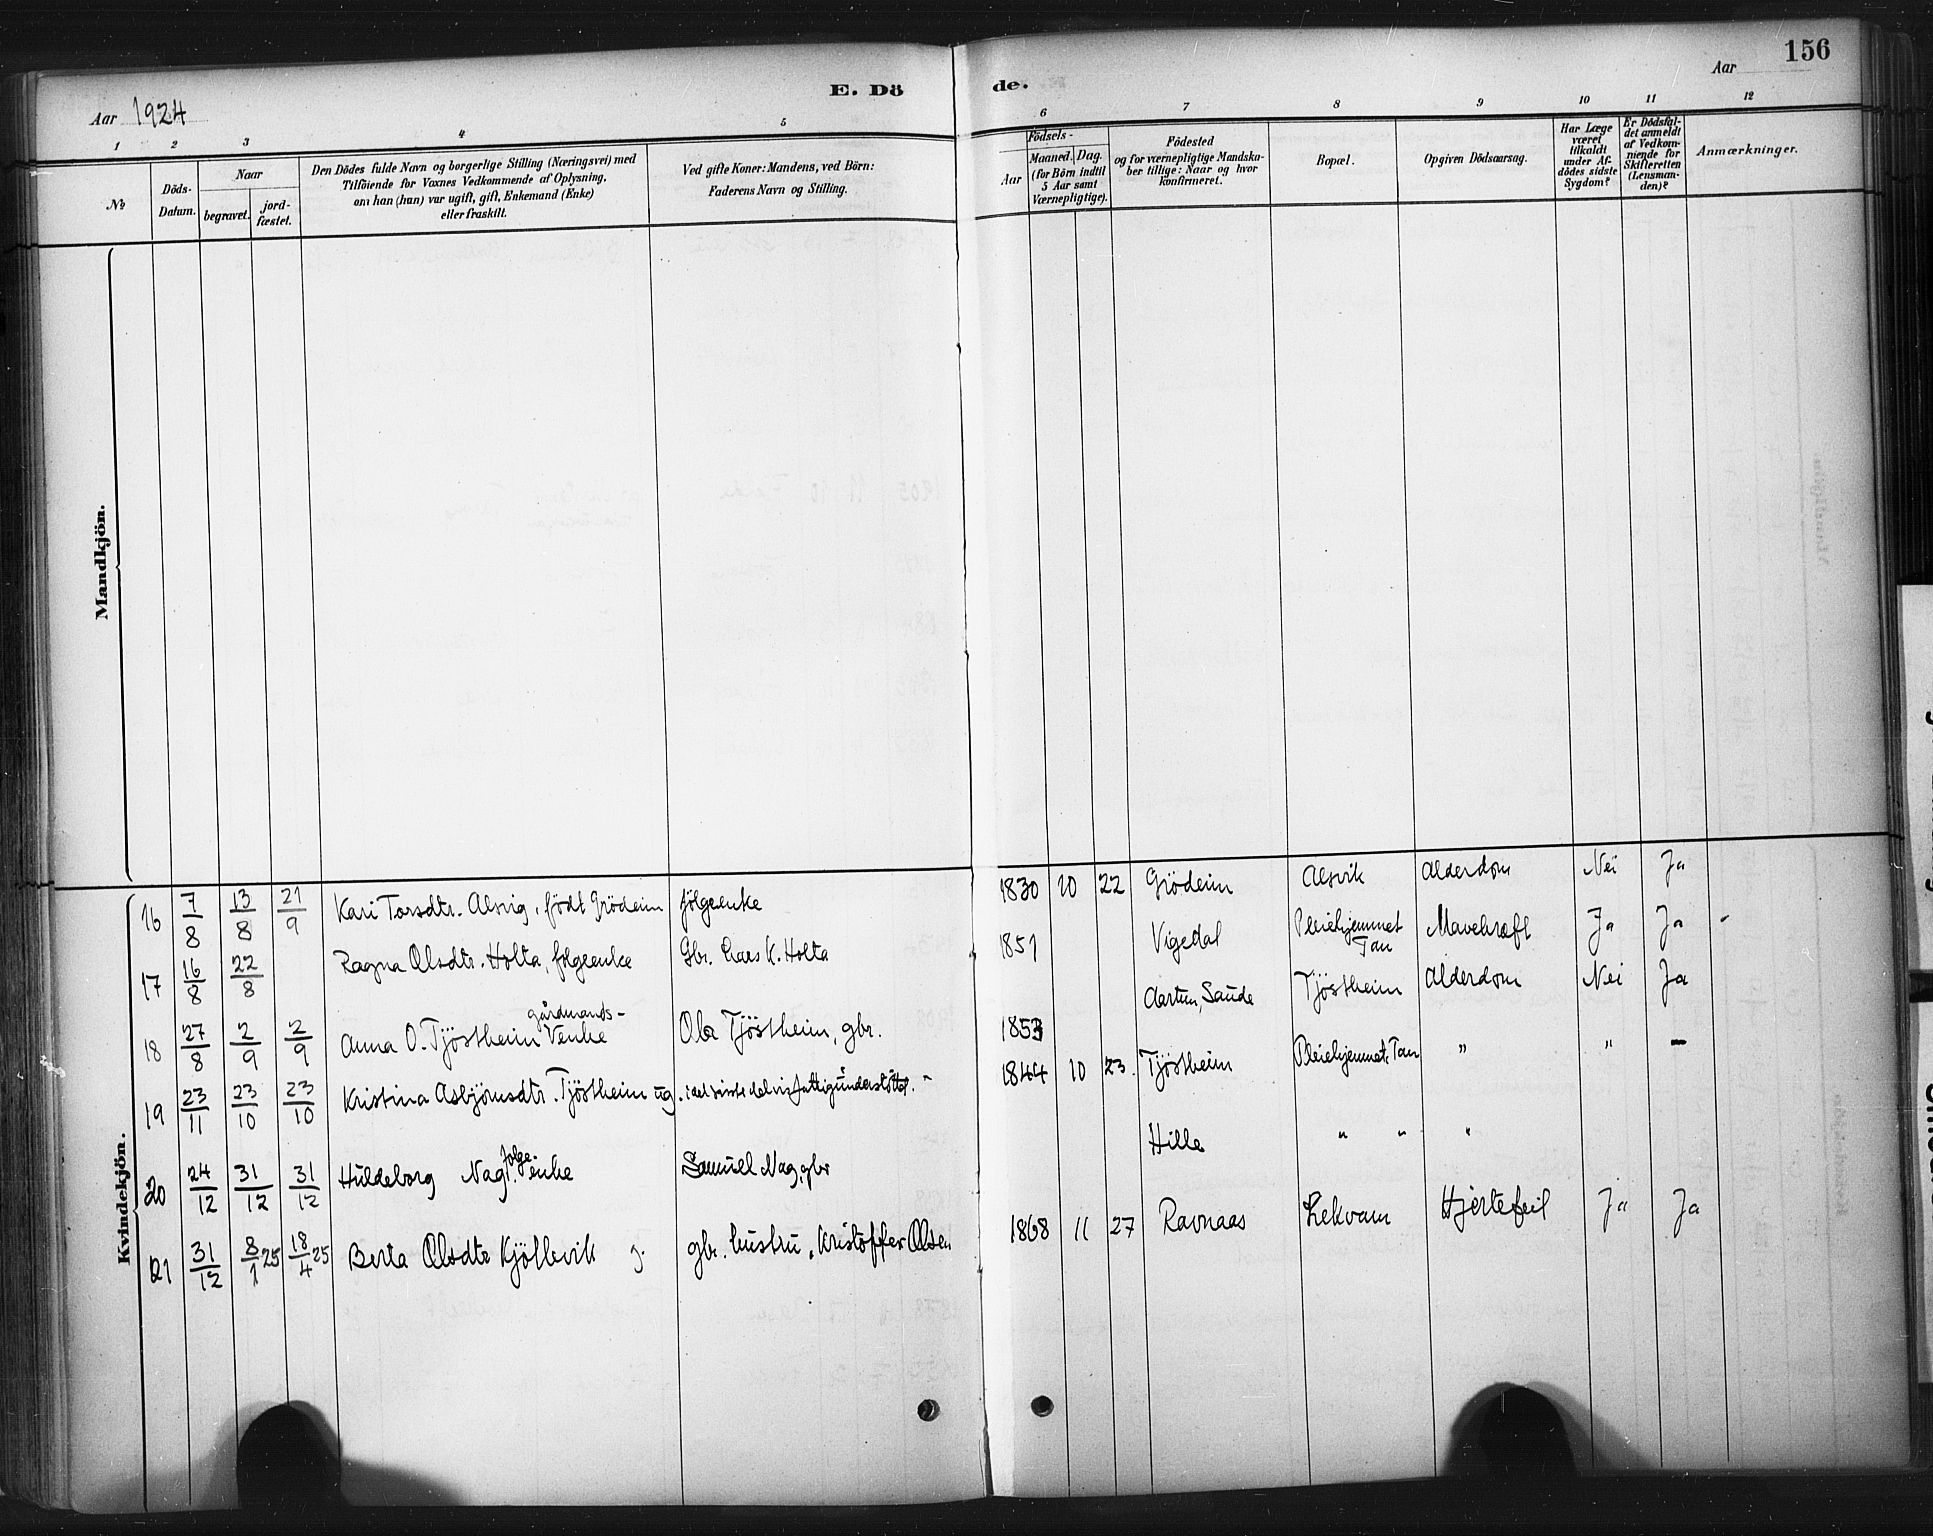 Aar 1924
E. Dö
de.
Aar
156
1 2 3 4 5 6 7 8 9 10 11 12
No
Döds-
Datum.
Naar
begravet.
jord-
fæstet.
Den Dödes fulde Navn og borgerlige Stilling (Næringsvei) med
Tilföiende for Voxnes Vedkommende af Oplysning,
om han (hun) var ugift, gift, Enkemand (Enke)
eller fraskilt.
Ved gifte Koner: Mandens, ved Börn:
Faderens Navn og Stilling.
Födsels-
Aar
Maaned. Dag.
(for Börn indtil
5 Aar samt
Værnepligtige).
Födested
og for værnepligtige Mandska-
ber tillige: Naar og hvor
konfirmeret.
Bopæl.
Opgiven Dödsaarsag.
Har Læge
været
tilkaldt
under Af-
dödes sidste
Sygdom?
Er Dödsfal-
det anmeldt
af Vedkom-
mende for
Skifteretten
(Lensman-
den)?
Anmærkninger.
Mandkjön.
Kvindekjön.
16 7/8 13/8 21/9 Kari Torsdtr. Alsvig, födt Grödeim fölgeenke 1830 10 22 Grödeim Alsvik Alderdom Nei Ja
17 16/8 22/8 Ragna Olsdtr. Holta, følgeenke Gbr. Lars K. Holta 1851 Vigedal Pleiehjemmet Tau Mavekræft Ja Ja
18 27/8 2/9 2/9 Anna O. Tjöstheim gårdmands- enke Ola Tjöstheim, gbr. 1853 Aartun, Saude Tjöstheim Alderdom Nei Ja
19 23/11 23/10 23/10 Kristina Asbjörnsdtr. Tjöstheim ug. i det siste delvis fattigunderstöttet. 1844 10 23. Tjöstheim Pleiehjemmet, Tau " " -
20 24/12 31/12 31/12 Huldeborg Nag, følge- enke Samuel Nag, gbr Hille " " "
21 31/12 8/1 25 18/4 25 Berta Olsdtr Kjöllevik g. gbr. hustru, Kristoffer Olsen 1868 11 27 Ravnaas Lekvam Hjertefeil Ja Ja